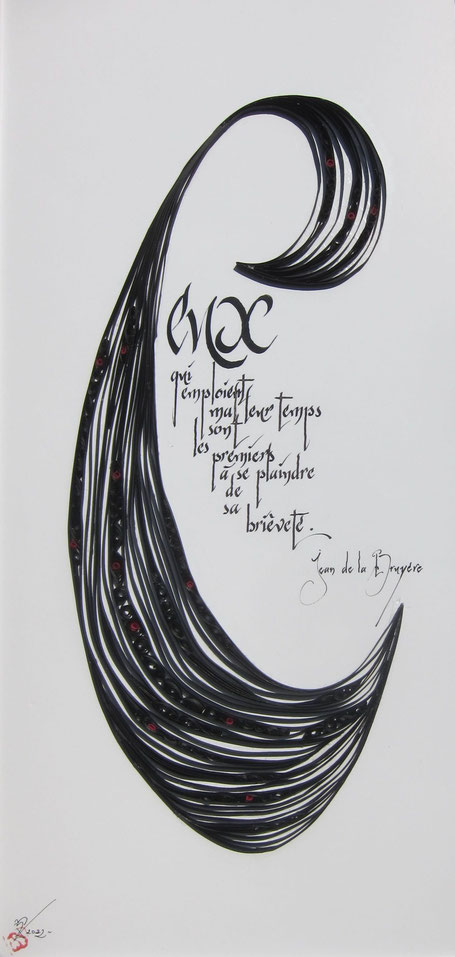 Ceux
qui
emploient
mal leur temps
sont
les premiers
à se plaindre
de
sa
brièveté.
Jean de la Bruyére
2021